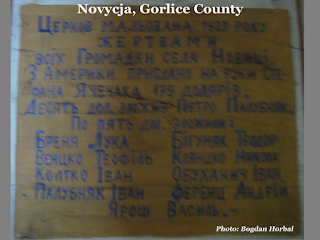 Novycja, Gorlice County
Церков мальована 1929 року
жертвами
всіх громадян села Новиці.
З Америки прислано на руки Сте-
фана Ячечака 179 долярів.
Десять дол. зложив Петро Палубняк.
По пять дол. зложили:
Бреня Лука Бігуняк Теодор
Венцко Теофіль Коянцко Никола
Колтко Іван Обуханич Іван
Палубняк Іван Ференц Андрій
Ярош Василь.-
Photo: Bogdan Horbal